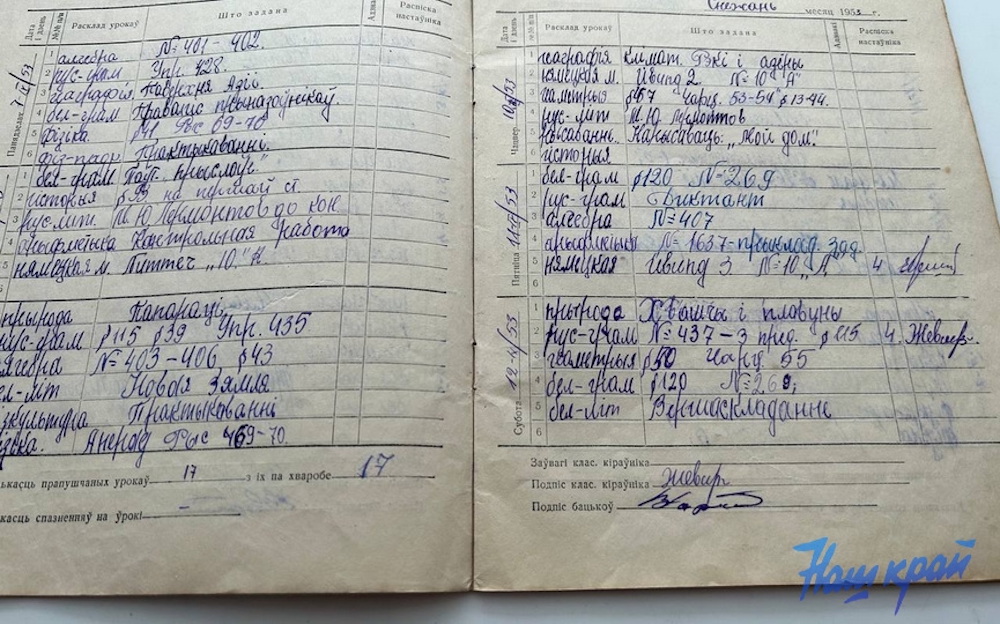 Дата і дзень
№№ п/п
Расклад урокаў
Што задана
Адзнакі
Распіска настаўніка
Панядзелак 7/XII 53
1 алгебра № 401 – 402.
2 рус-грам Упр. 428.
3 геаграфія. Паверхня Азіі.
4 бел-грам Правапіс прыназоўнікаў.
5 фізіка. §41 Рыс 69-70
6 фіз-падр. Практыкаванні.
1 бел-грам Паўт. прыслоўе"
2 гісторыя § 33 на першай ст.
3 рус-літ. М Ю Лермонтов до кон
4 арыфметыка Контрольная работа
5 нямецкая м. Литтеч „10." Н.
6
прырода Папараці
рус-грам §115 §39 Упр. 435
алгебра № 403-406, §43
бел-літ Новая зямля
фізкультура Практыкаванні
фізка. Анероід Рыс 469-70.
колькасць прапушчаных урокаў 17 з іх па хваробе 17
колькасць спазненняў на ўрокі –
Снежань месяц 1953 г.
Дата і дзень
№№ п/п
Расклад урокаў
Што задана
Адзнакі
Распіска настаўніка
Чацвер. 10/XII 53
1 геаграфія Клімат. Рэкі і азёры
2 нямецкая м. № 10 „А"
3 геаметрыя §67 Чарц. 53-54 § 13-44.
4 рус-літ М.Ю Лермонтов
5 Напісаваць „Мой дом."
6 гісторыя
Пятніца 11-XII/53
1 бел-грам §120 № 269
2 рус-грам Диктант
3 алгебра № 407
4 арыфметыка № 1637-прыклад. зад.
5 нямецкая 3 № 10 „А" 4
6
Субота 12-XII/53
1 прырода Хвашчы і плавуны
2 рус-грам № 437 – 3 пред. § 115 4 Жевнер.
3 геометрыя §50 Чарц 55
4 бел-грам §120 № 269;
5 бел-літ Вершаскладанне
6
Заўвагі клас. кіраўніка
Подпіс клас. кіраўніка Жевнер
Подпіс бацькоў
Наш край